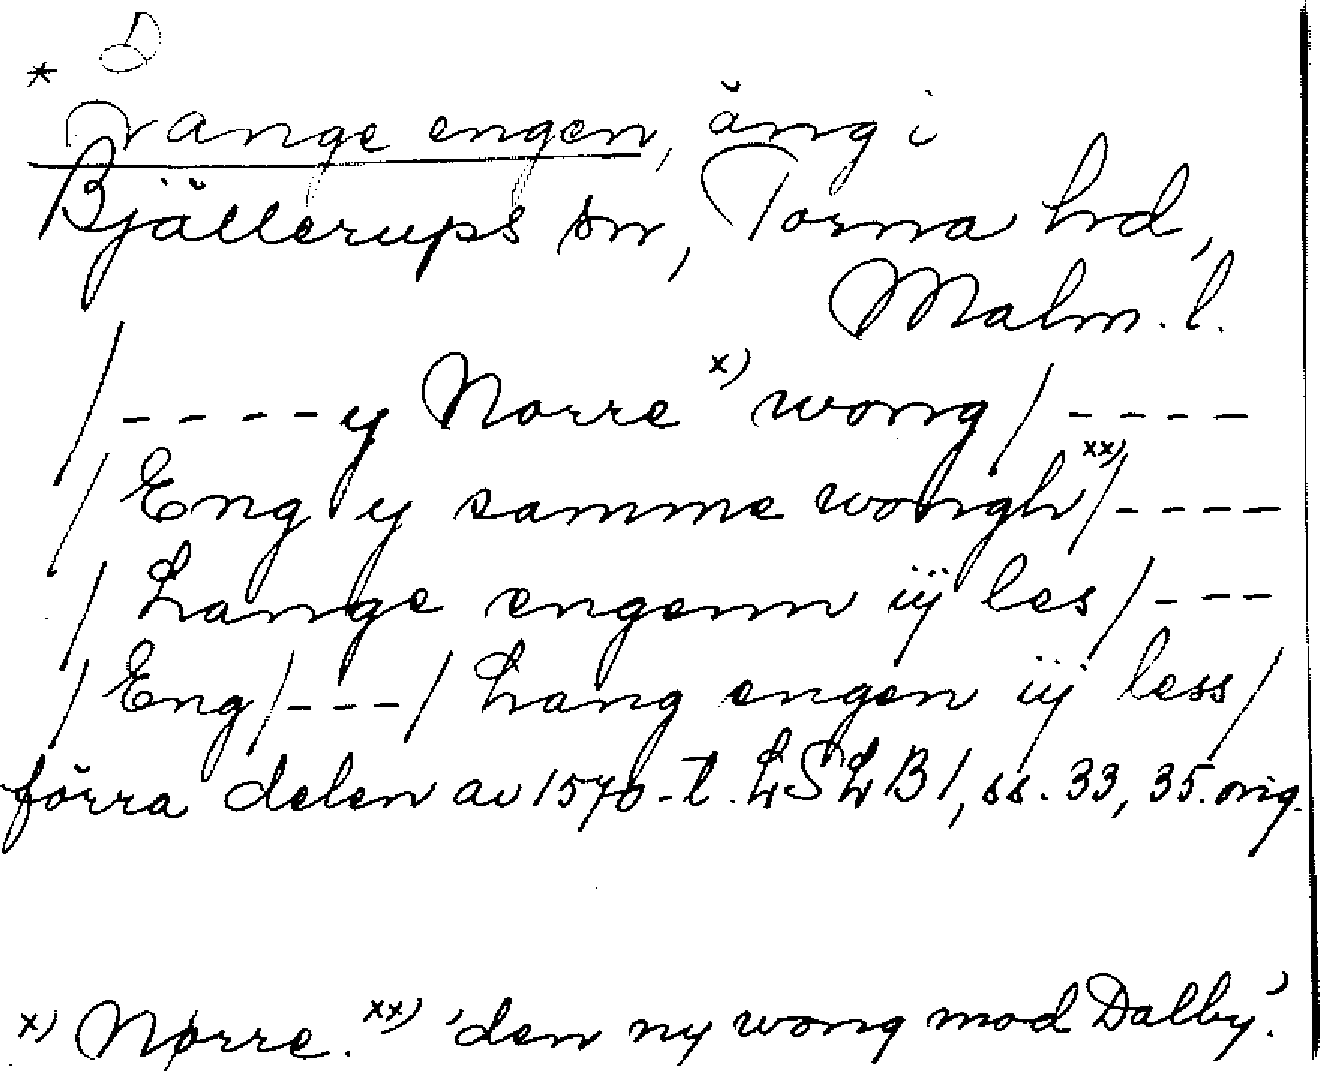 * Trange engen, äng i
Bjällerups sn, Torna hd,
Malm. l.
/----y Norre x) wong/----
/Eng y samme wongh xx)/----
/Lange engenn iij les/---
/Eng/---/Lang engen iij less/
förra delen av 1570-t. LSLB1, ss. 33, 35. orig.
x) Nørre. xx) 'den ny wong mod Dalby'.